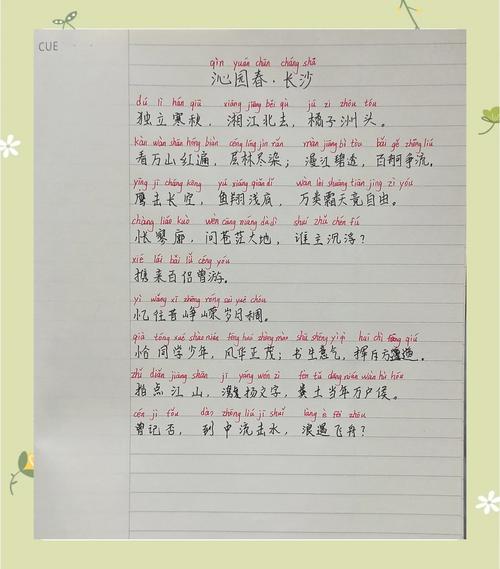 CUE
qìn yuán chūn cháng shā
沁园春·长沙
dú lì hán qiū xiāng jiāng běi qù jú zi zhōu tóu
独立寒秋，湘江北去，橘子洲头。
kàn wàn shān hóng biàn céng lín jìn rǎn màn jiāng bì tòu bǎi gě zhēng liú
看万山红遍，层林尽染；漫江碧透，百舸争流。
yīng jī cháng kōng yú xiáng qiǎn dǐ wàn lèi shuāng tiān jìng zì yóu
鹰击长空，鱼翔浅底，万类霜天竞自由。
chàng liáo kuò wèn cāng máng dà dì shuí zhǔ chén fú
怅寥廓，问苍茫大地，谁主沉浮？
xié lái bǎi lǚ céng yóu
携来百侣曾游。
yì wǎng xī zhēng róng suì yuè chóu
忆往昔峥嵘岁月稠。
qià tóng xué shào nián fēng huá zhèng mào shū shēng yì qì huī chì fāng qiú
恰同学少年，风华正茂；书生意气，挥斥方遒。
zhǐ diǎn jiāng shān jī yáng wén zì fèn tǔ dāng nián wàn hù hóu
指点江山，激扬文字，粪土当年万户侯。
céng jì fǒu dào zhōng liú jī shuǐ làng è fēi zhōu
曾记否，到中流击水，浪遏飞舟？